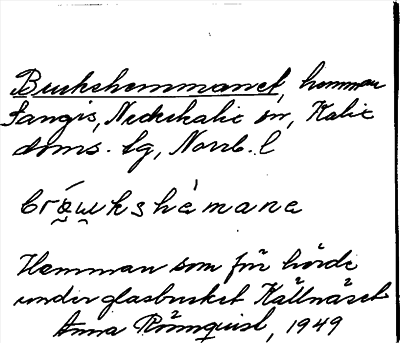 Brukshemmanet, hemman
Sangis, Nederkalix sn, Kalix
doms. lg, Norrb. l
brówkshèmane
Hemman som förr hörde
under glasbruket Källnäset
Anna Rönnquist, 1949